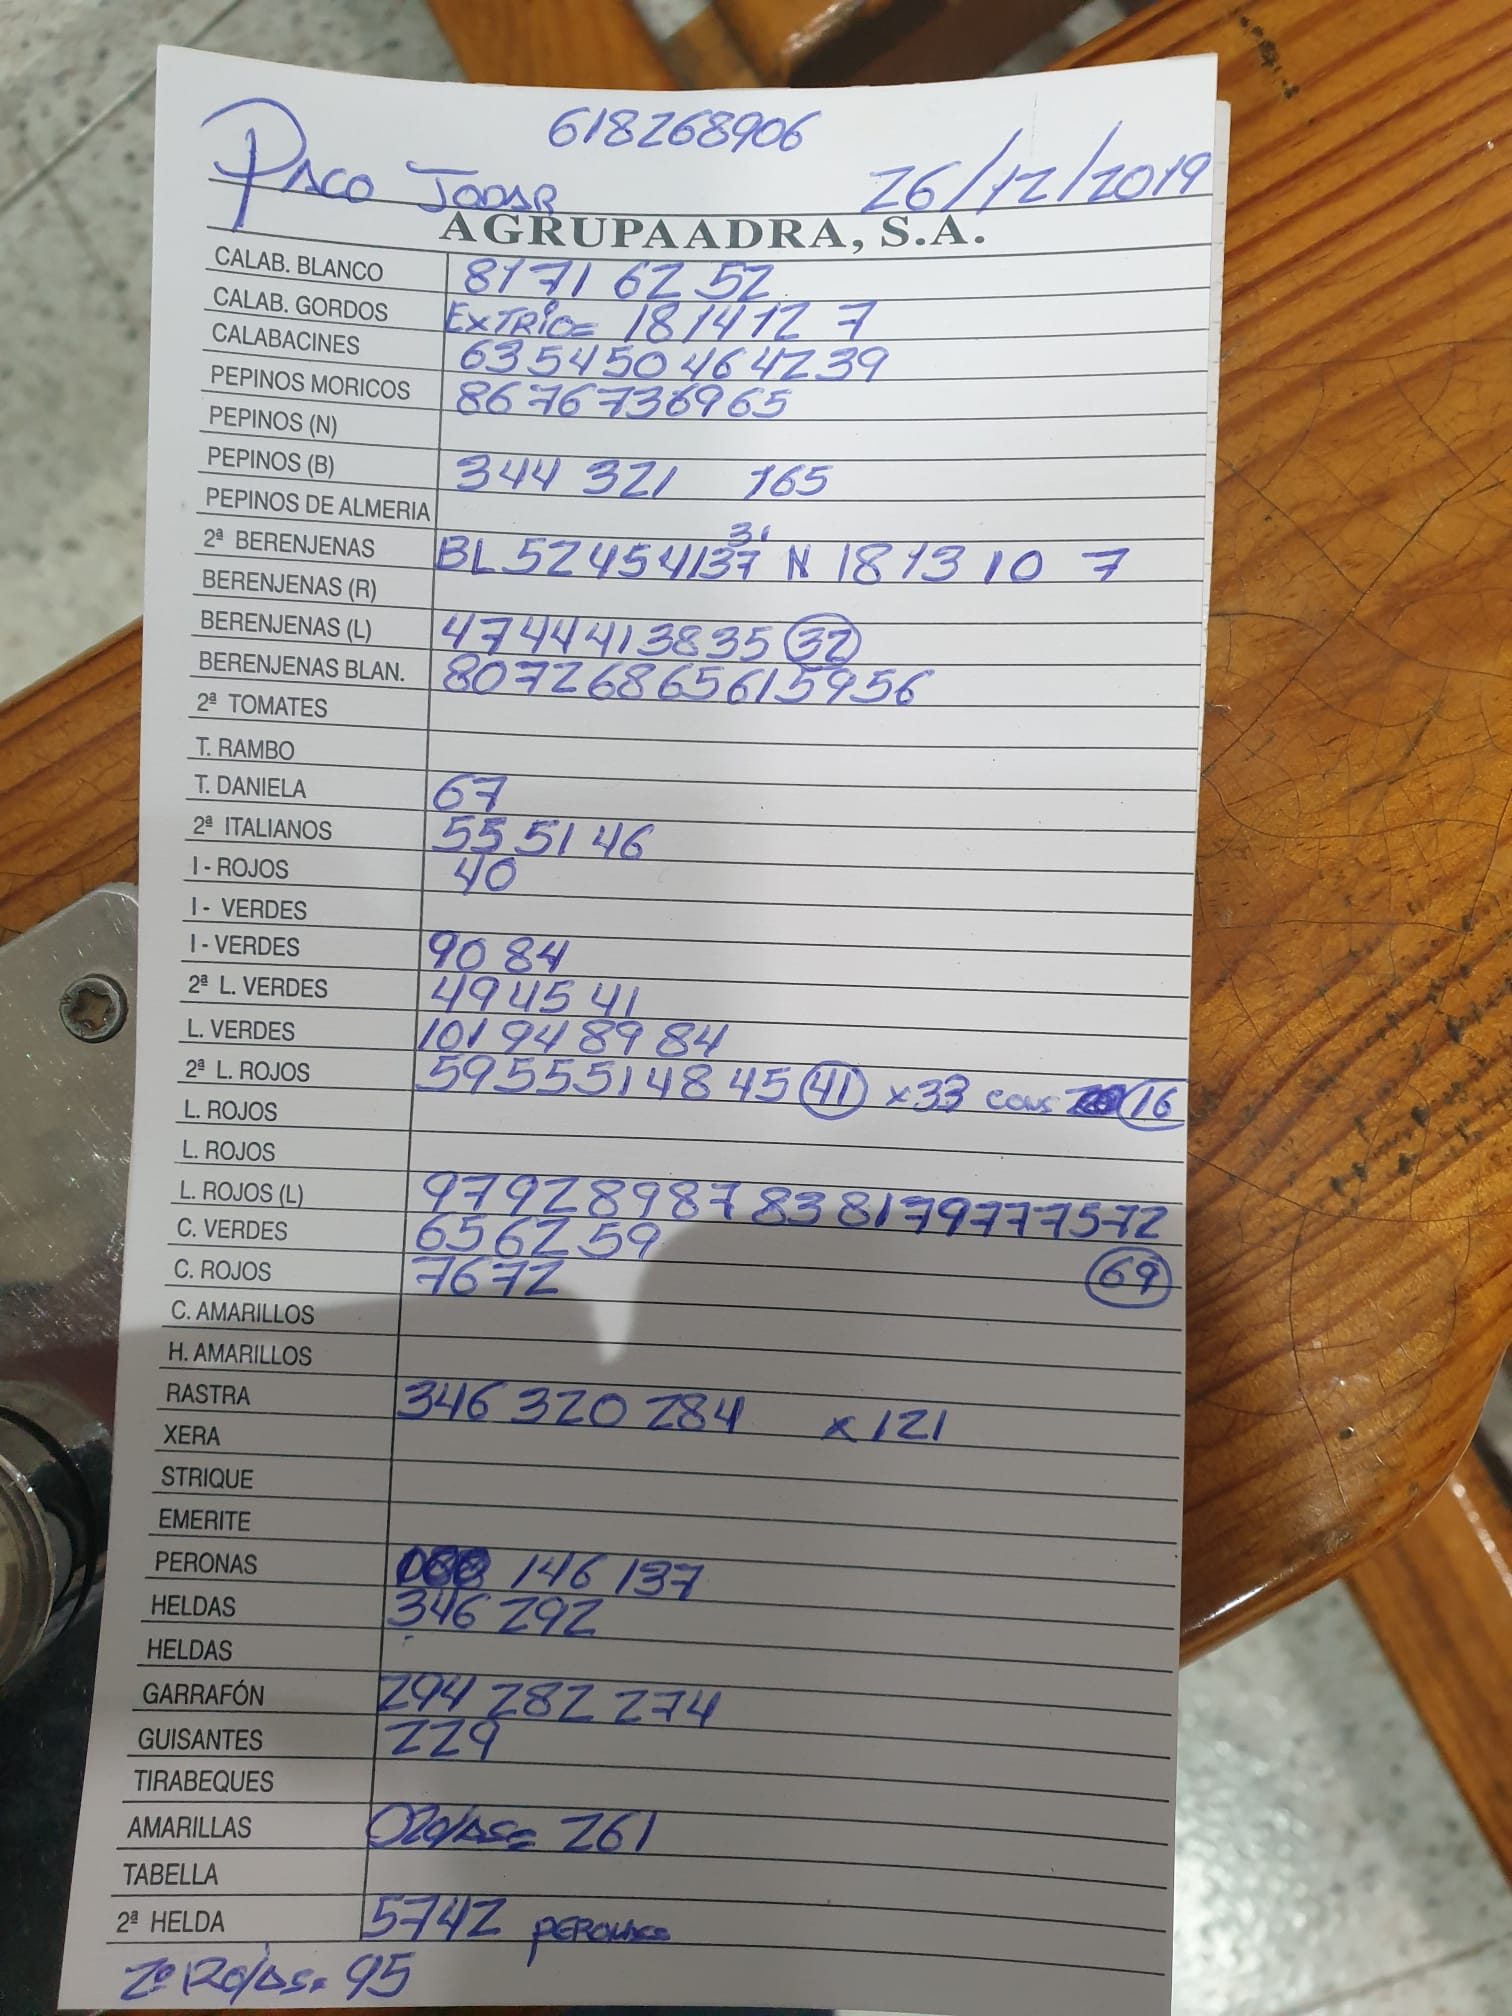 618268906
PACO JODAR 26/12/2019
AGRUPAADRA, S.A.
CALAB. BLANCO 81 71 62 52
CALAB. GORDOS EXTRIO= 18 14 12 7
CALABACINES 63 54 50 46 42 39
PEPINOS MORICOS 86 76 73 69 65
PEPINOS (N)
PEPINOS (B) 344 321 165
PEPINOS DE ALMERIA
31
2ª BERENJENAS BL 52 45 41 37 N 18 13 10 7
BERENJENAS (R)
BERENJENAS (L) 47 44 41 38 35 32
BERENJENAS BLAN. 80 72 68 65 61 59 56
2ª TOMATES
T. RAMBO
T. DANIELA 67
2ª ITALIANOS 55 51 46
I - ROJOS 40
I - VERDES
I - VERDES 90 84
2ª L. VERDES 49 45 41
L. VERDES 101 94 89 84
2ª L. ROJOS 59 55 51 48 45 41 x33 CONS 16
L. ROJOS
L. ROJOS
L. ROJOS (L) 97 92 89 87 83 81 79 77 75 72
C. VERDES 65 62 59 69
C. ROJOS 76 72
C. AMARILLOS
H. AMARILLOS
RASTRA 346 320 284 x 121
XERA
STRIQUE
EMERITE
PERONAS 146 137
HELDAS 346 292
HELDAS
GARRAFÓN 294 282 274
GUISANTES 229
TIRABEQUES
AMARILLAS 261
TABELLA
2ª HELDA 57 42
2ª ROJAS= 95